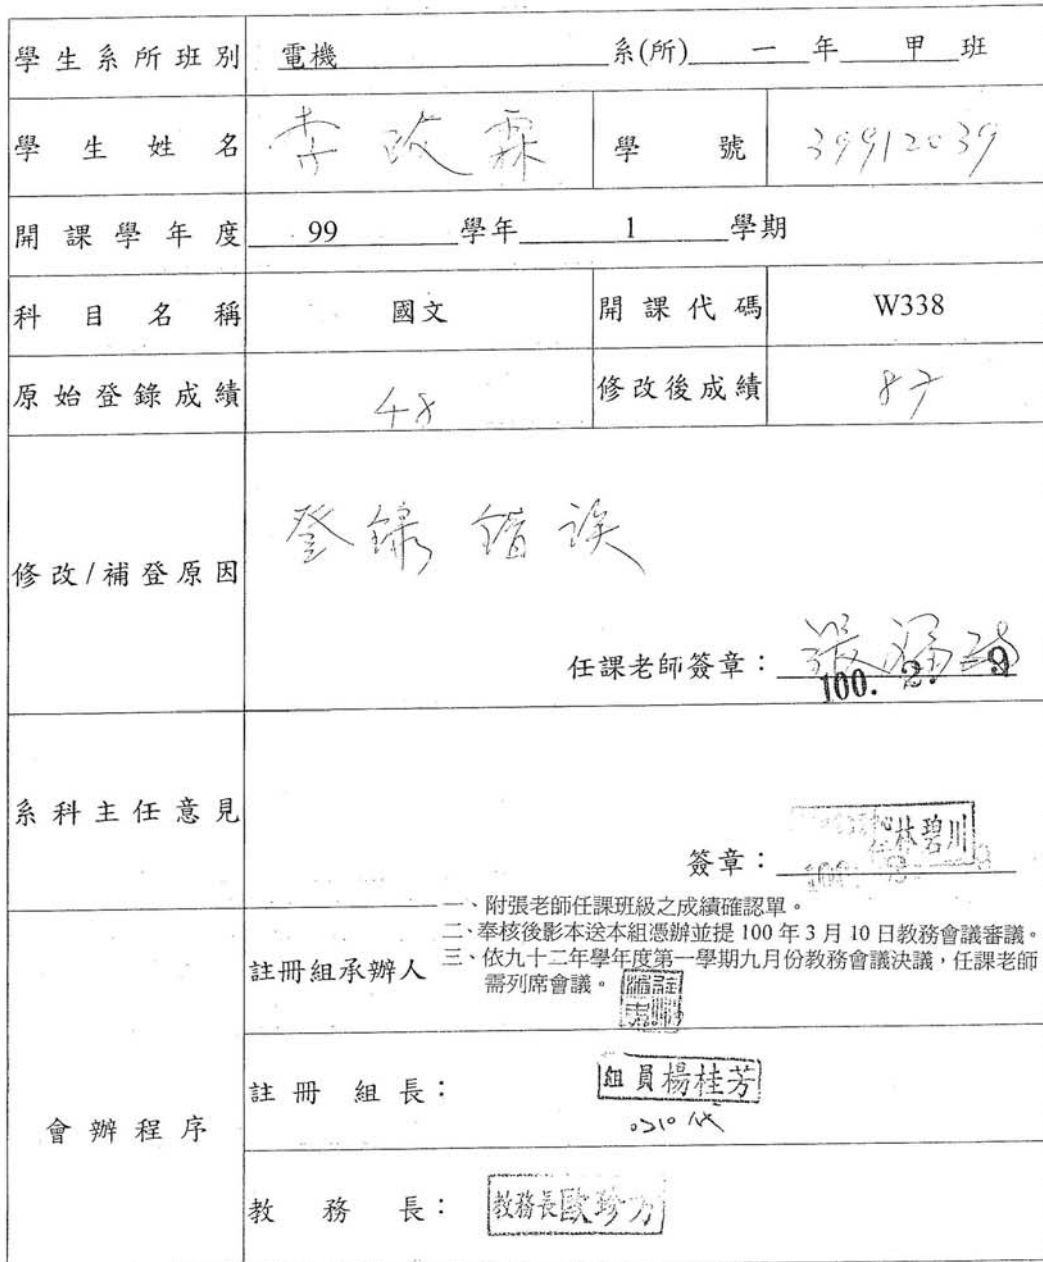 學生系所班別 電機 系(所) 一 年 甲 班
學生姓名 李政霖 學號 39912039
開課學年度 99 學年 1 學期
科目名稱 國文 開課代碼 W338
原始登錄成績 48 修改後成績 87
登錄錯誤
修改/補登原因
任課老師簽章:張
100. 2. 9
系科主任意見
林碧川
簽章:
一、附張老師任課班級之成績確認單。
二、奉核後影本送本組憑辦並提 100 年 3 月 10 日教務會議審議。
註冊組承辦人 三、依九十二年學年度第一學期九月份教務會議決議,任課老師
需列席會議。
註冊組長: 組員楊桂芳
0310代
會辦程序
教務長: 教務長歐珍方